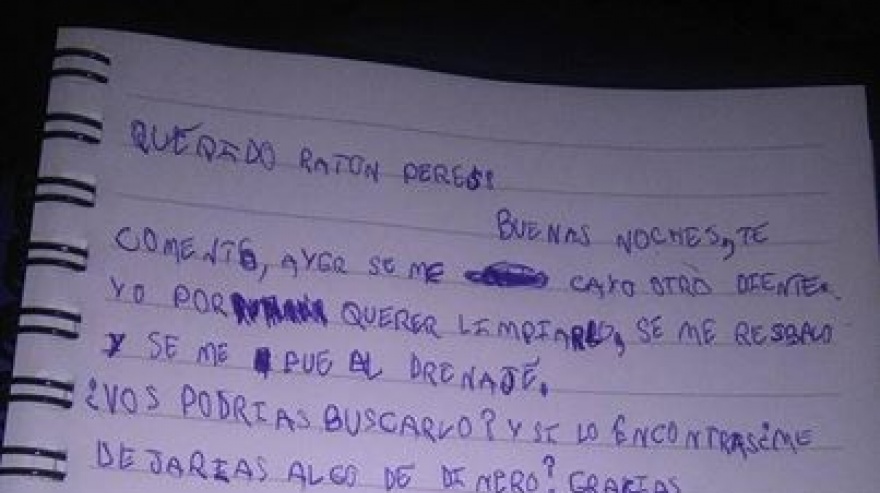 QUERIDO RATON PERES:
BUENAS NOCHES, TE
COMENTO, AYER SE ME CAYO OTRO DIENTE.
YO POR QUERER LIMPIARLO, SE ME RESBALO
Y SE ME FUE AL DRENAJE.
¿VOS PODRIAS BUSCARLO? Y SI LO ENCONTRAS ¿ME
DEJARIAS ALGO DE DINERO? GRAKIAS